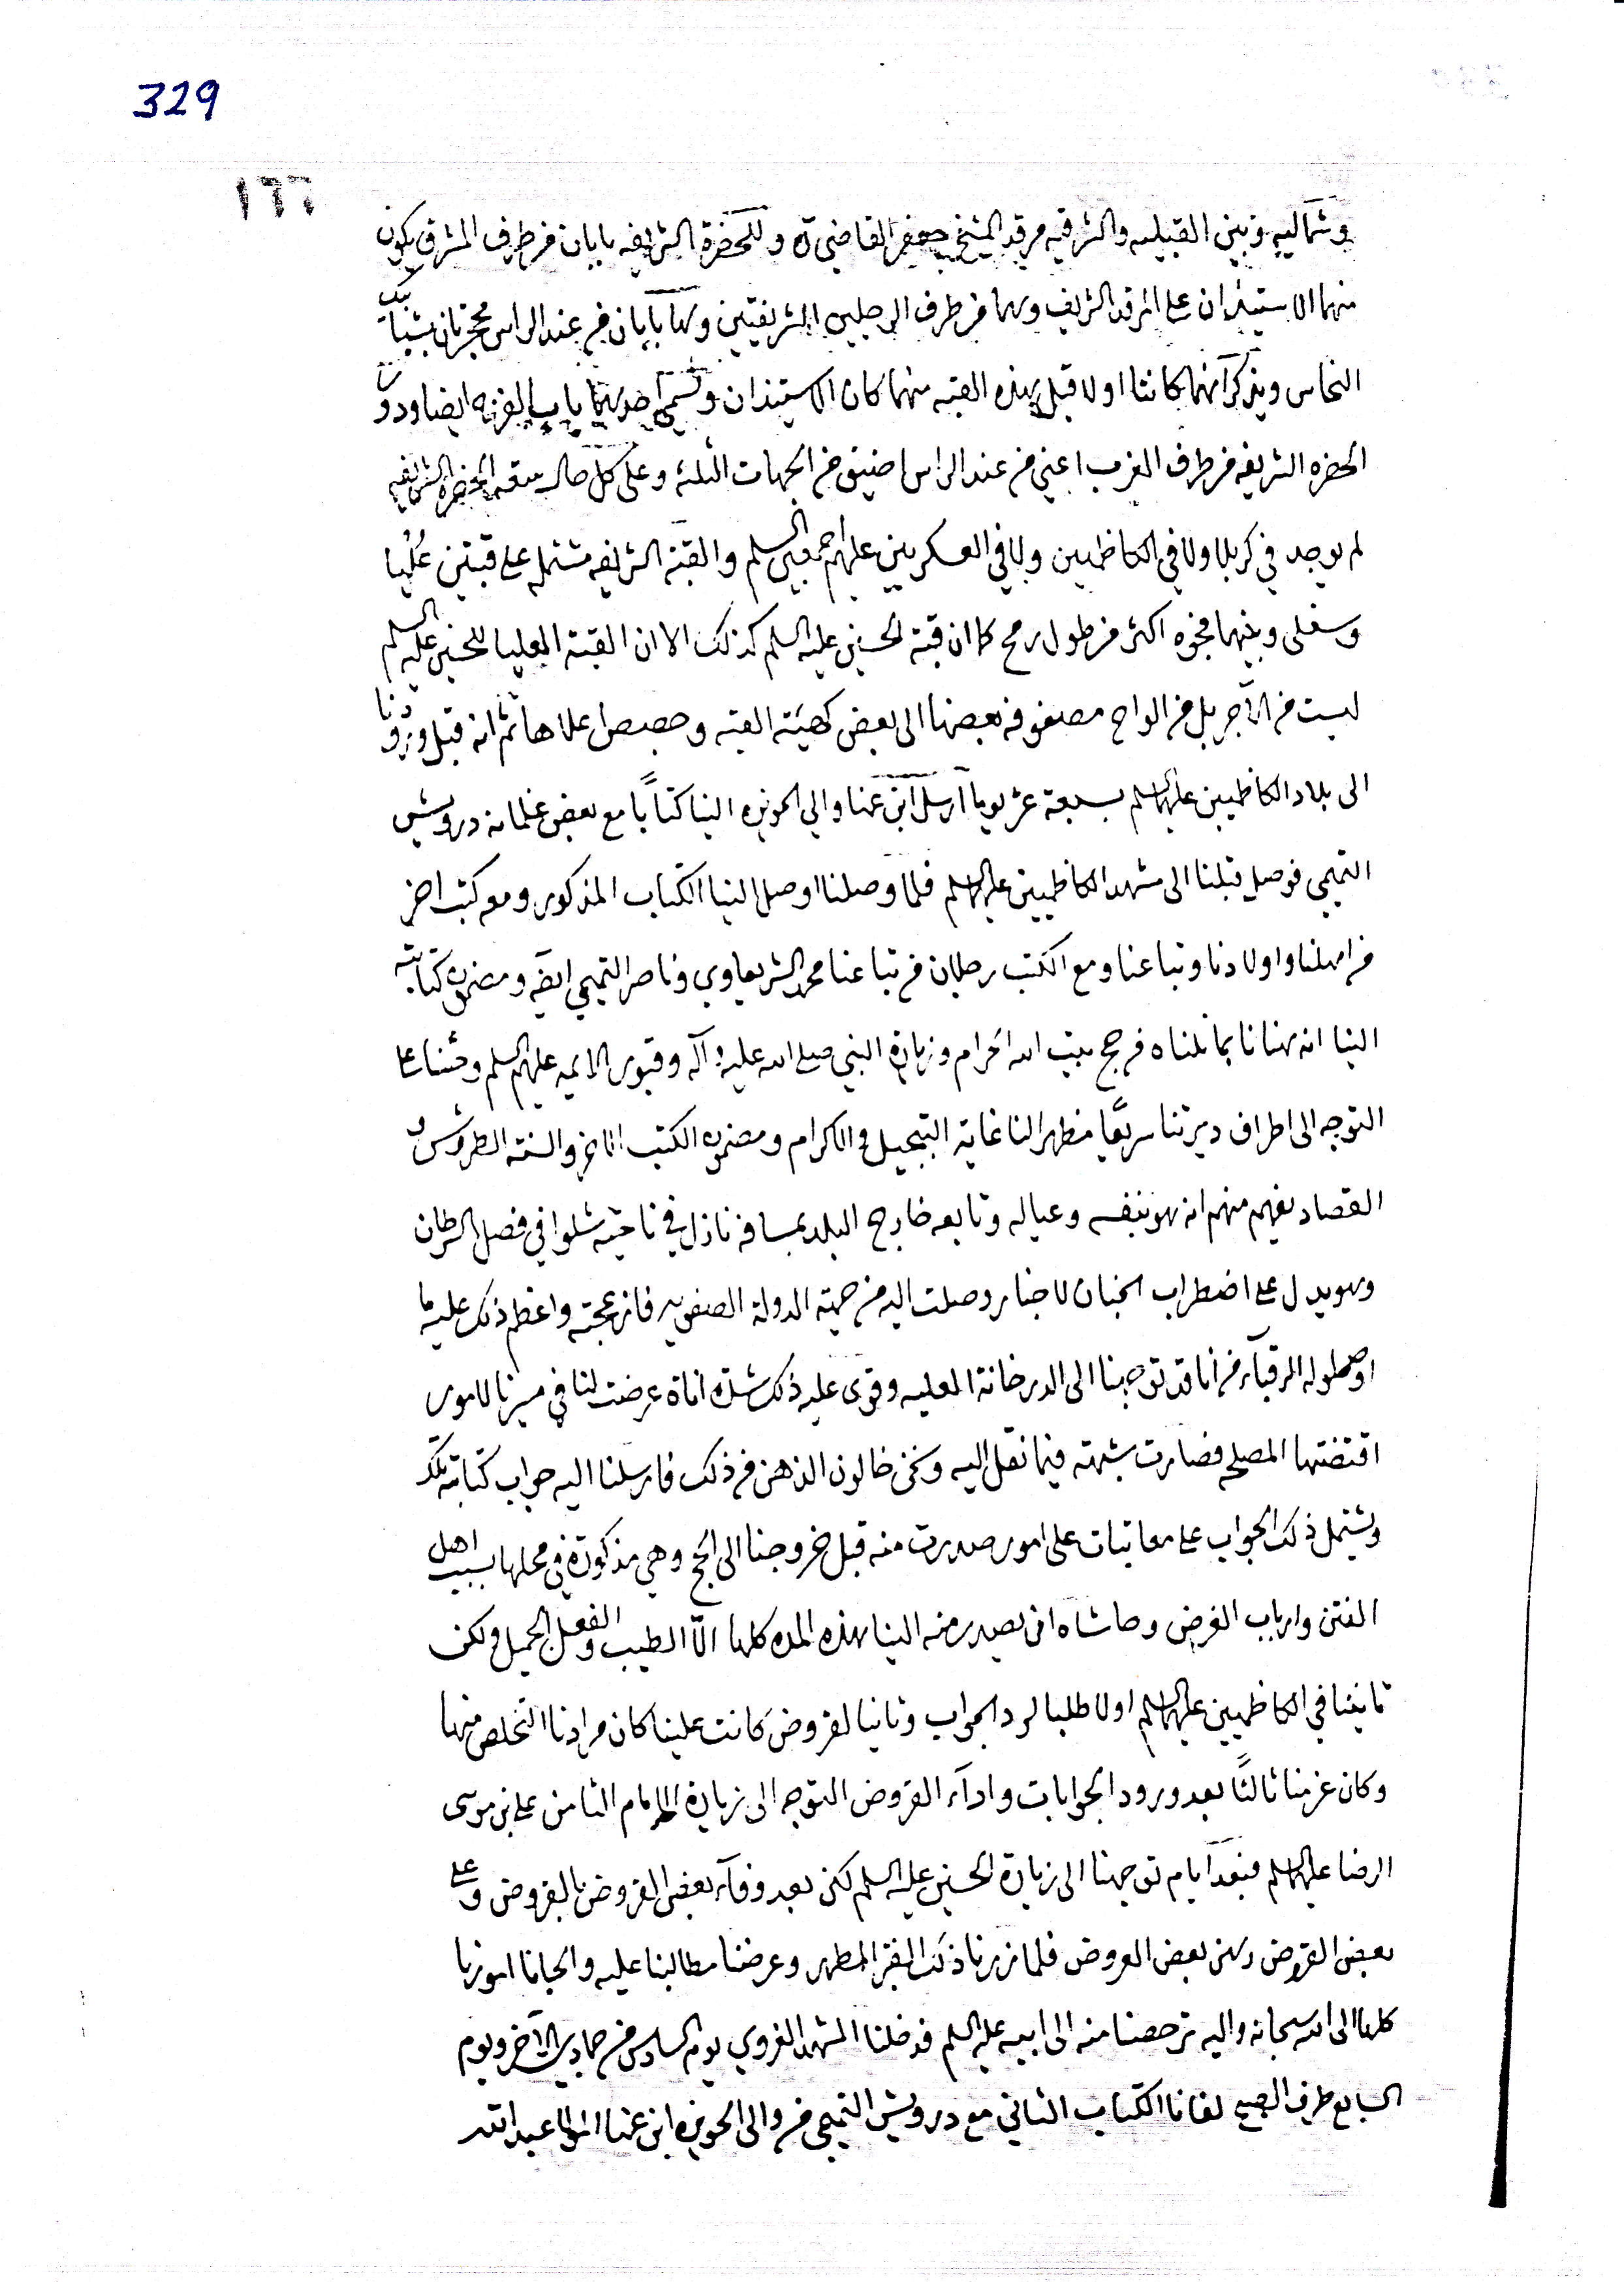 329
١٦٦
وشماليه وبين القبليه والشرقيه مرقد الشيخ جعفر القاضي ره وللحضرة الشريفه بابان من طرف المشرق يكون
منهما الاستيذان على المرقد الشريف وهما من طرف الرجلين الشريفتين ولها بابان من عند الراس محجرتان بشباك
النحاس ويذكر انهما كانتا اولا قبل هذه القبه منهما كان الاستيذان وتسمى احدهما باب الفرنه ايضا ودور
الحضره الشريفه من طرف الغرب اعني من عند الراس اضيق من الجهات الثلثه وعلى كل حال سعة الحضره الشريفه
لم يوجد في كربلا ولا في الكاظمين ولا في العسكريين عليهم اجمعين السلم والقبة الشريفه مشتمله على قبتين عُليا
وسفلى وبينهما فجوه اكثر من طول رمح كما ان قبة الحسين عليه السلم كذلك الا ان القبة العليا للحسين عليه السلم
ليست من الآجر بل من الواح مصفوفه بعضها الى بعض كهيئة القبه وجصص اعلاها ثم انه قبل ورودنا
الى بلاد الكاظمين عليهما السلم بسبعة عشر يوما ارسل ابن عمنا والي الحويزه الينا كتاباً مع بعض غلمانه درويش
التميمي فوصل قبلنا الى مشهد الكاظمين عليهما السلم فلما وصلنا اوصل الينا الكتاب المذكور ومعه كتب اخر
من اهلنا واولادنا وتباعنا ومع الكتب رجلان من تباعنا محمد الشريعاوي وناصر التميمي ايضه ومضمون كتابته
الينا انه هنانا بما نلناه من حج بيت الله الحرام وزيارة النبي صلى الله عليه وآله وقبور الائمه عليهم السلم وحثنا على
التوجه الى اطراف ديرتنا سريعًا مظهر النا غاية التبجيل والاكرام ومضمون الكتب الاخر والسنة الطروش و
القصاد يفهم منهم انه هو بنفسه وعياله وتابعه خارج البلد بمسافه نازل في ناحية شلوا في فصل السرطان
وهو يدل على اضطراب الجنان لاخبار وصلت اليه من جهة الدولة الصفويه فازعجته واعظم ذلك عليه ما
اوصلوا له الرقباء من أنا قد توجهنا الى الدرخانة العليه وقوى عليه ذلك شدة اناة عرضت لنا في ميرنا لامور
اقتضتها المصلحه فصارت شبهته فيما نقل اليه ونحن خالون الذهن من ذلك فارسلنا اليه جواب كتابته تلك
ويشتمل ذلك الجواب على معاتبات على امور صدرت منه قبل خروجنا الى الحج وهي مذكورة في محلها بسبب اهل
الفتن وارباب الغرض وحاشاه ان يصدر منه الينا هذه المده كلها الّا الطيب والفعل الجميل ولكن
تأنينا في الكاظمين عليهما السلم اولا طلبا لرد الجواب وثانيا لقروض كانت علينا كان مرادنا التخلص منها
وكان عزمنا ثالثًا بعد ورود الجوابات واداء القروض التوجه الى زيارة الامام الثامن علي بن موسى
الرضا عليهما السلم فبعد ايام توجهنا الى زيارة الحسين عليه السلم لكن بعد وفآء بعض القروض بالقروض وعلى
بعض القروض رهن بعض العروض فلما زرنا ذلك القبر المطهر وعرضنا مطالبنا عليه والجانا امورنا
كلها الى الله سبحانه واليه ترخصنا منه الى ابيه عليه السلم فدخلنا المشهد الغروي يوم السادس من جمادي الآخر ويوم
السابع طرف الصبح لفانا الكتاب الثاني مع درويش التميمي من والى الحويزه ابن عمنا المولى عبد الله